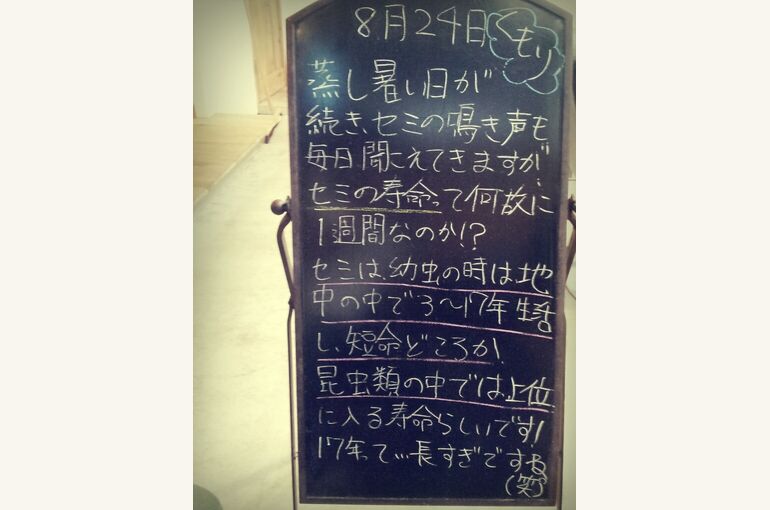 8月24日 くもり
蒸し暑い日が
続き、セミの鳴き声も
毎日聞こえてきますが、
セミの寿命って何故に
1週間なのか!?
セミは、幼虫の時は、地
中の中で3〜17年生活
し、短命どころか、
昆虫類の中では、上位
に入る寿命らしいです!
17年って…長すぎですね
(笑)